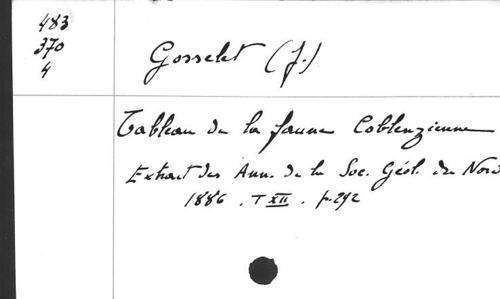 483
370
4
Gosselet (J.)
Tableau de la faune Coblenzienne
Extrait des Ann. de la Soc. Géol. du Nord
1886. T XII. p. 292